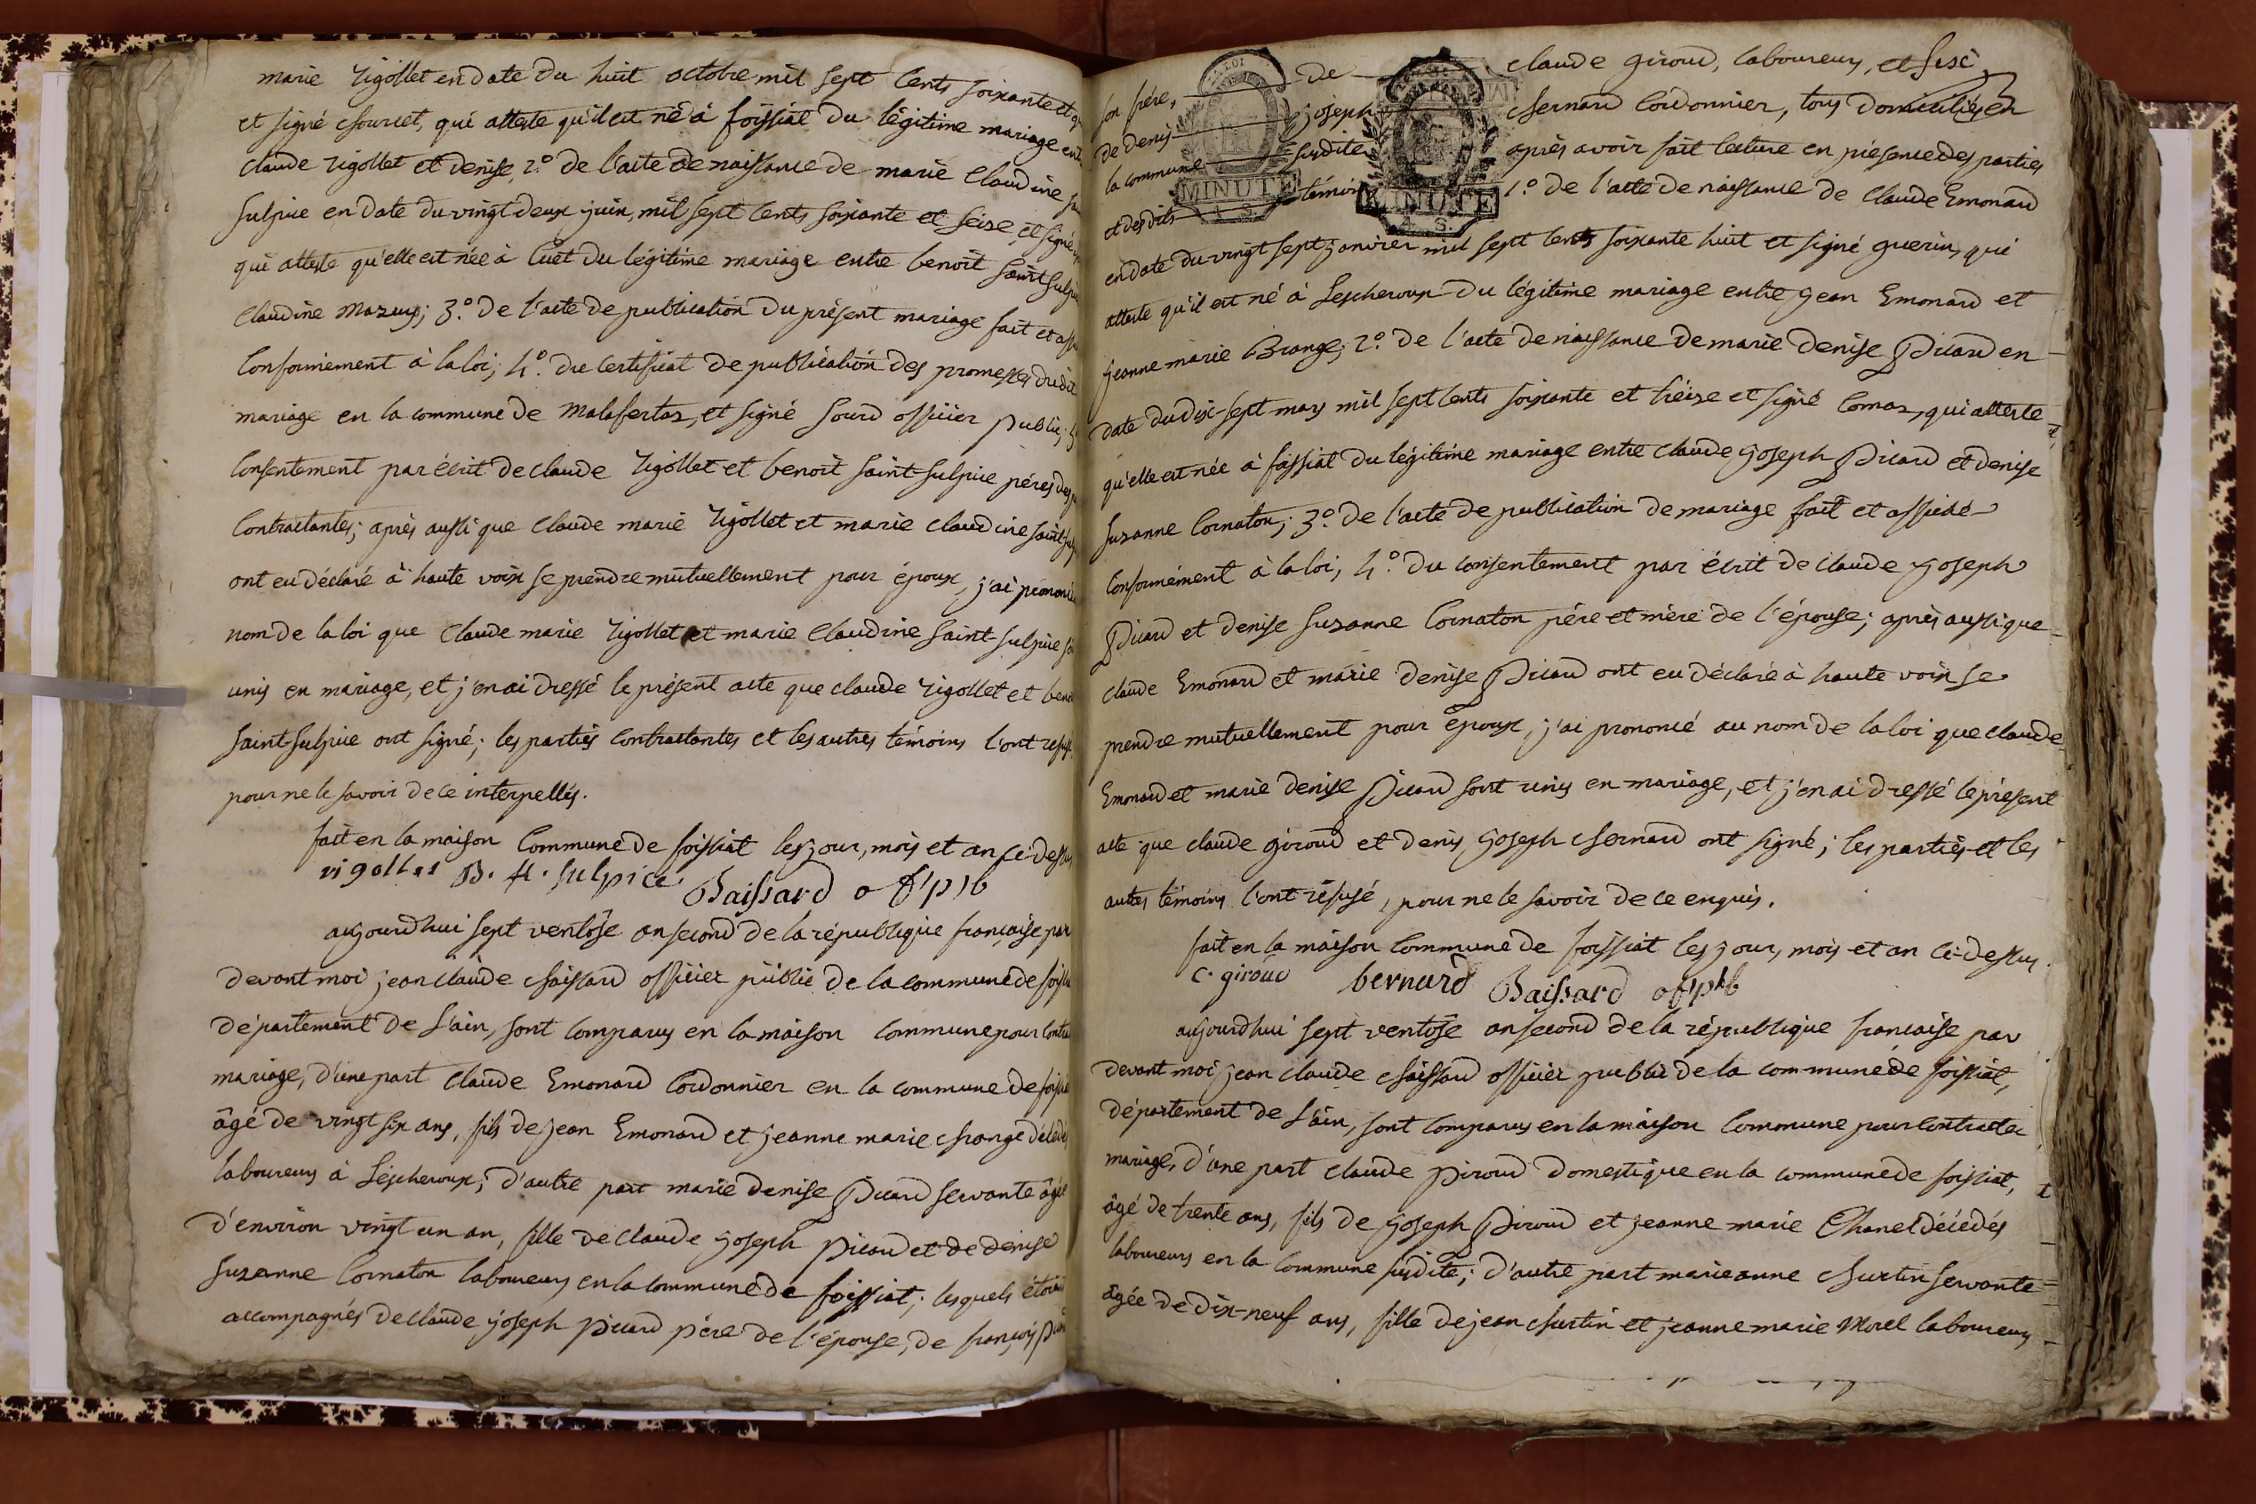 marie rigollet en date du huit octobre mil sept cents soixante et
et signé bourcet, qui atteste qu'il est né à foissiat du légitime mariage ent
claude rigollet et denise, 2.° de l'acte de naissance de marie claudine
sulpice en date du vingt deux juin, mil sept cents soixante et seize, et signé
qui atteste qu'elle est née à cuet du légitime mariage entre benoit saint sulpice
claudine mazuy; 3.° de l'acte de publication du présent mariage fait et aff
conformément à la loi; 4.° du certificat de publication des promesses dudit
mariage en la commune de malafertaz, et signé sourd officier public;
consentement par écrit de claude rigollet et benoit saint-sulpice pères des
contractantes; après aussi que claude marie rigollet et marie claudine saint-sulp
ont eu déclaré à haute voix se prendre mutuellement pour époux, j'ai prononcé
nom de la loi que claude marie rigollet et marie claudine saint-sulpice
unis en mariage, et j'en ai dressé le présent acte que claude rigollet et beno
saint-sulpice ont signé; les parties contractantes et les autres témoins l'ont refusé
pour ne le savoir de ce interpellés.
fait en la maison commune de foissiat les jour, mois et an ci-dessus
rigollet B. st. sulpice Baissard off pb
aujourdhui sept ventôse an second de la république française par
devant moi jean claude baissard officier public de la commune de foiss
département de l'ain, sont comparus en la maison commune pour contra
mariage, d'une part claude Emonard cordonnier en la commune de foissi
âgé de vingt six ans, fils de jean Emonard et jeanne marie brange décédés
laboureurs à Lescheroux; d'autre part marie denise picard servante âgée
d'environ vingt un an, fille de claude joseph picard et de denise
suzanne cornaton laboureurs en la commune de foissiat; lesquels étoient
accompagnés de claude joseph picard père de l'épouse, de françois
son frère, de claude giroud, laboureurs, et
de denis joseph bernard cordonnier, tous domiciliés en
la commune susdite après avoir fait lecture en présence des parties
et desdits témoins 1.° de l'acte de naissance de claude Emonard
en date du vingt sept janvier mil sept cents soixante huit et signé guerin, qui
atteste qu'il est né à Lescheroux du légitime mariage entre jean Emonard et
jeanne marie Brange; 2.° de l'acte de naissance de marie denise picard en
date du dix-sept mars mil sept cents soixante et treize et signé comas, qui atteste
qu'elle est née à foissiat du légitime mariage entre claude joseph picard et denise
suzanne cornaton; 3.° de l'acte de publication de mariage fait et affiché
conformément à la loi, 4.° du consentement par écrit de claude joseph
picard et denise suzanne cornaton père et mère de l'épouse; après aussi que
claude Emonard et marie denise picard ont eu déclaré à haute voix se
prendre mutuellement pour époux, j'ai prononcé au nom de la loi que claude
Emonard et marie denise picard sont unis en mariage, et j'en ai dressé le présent
acte que claude giroud et denis joseph bernard ont signé; les parties et les
autres témoins l'ont refusé, pour ne le savoir de ce enquis.
fait en la maison commune de foissiat les jour, mois et an ci-dessus.
c. giroud bernard Baissard off pb
aujourdhui sept ventôse an second de la république française par
devant moi jean claude baissard officier public de la commune de foissiat,
département de l'ain, sont comparus en la maison commune pour contracter
mariage, d'une part claude piroud domestique en la commune de foissiat,
âgé de trente ans, fils de joseph piroud et jeanne marie Chanel décédés
laboureurs en la commune susdite; d'autre part marie anne burtin servante
âgée de dix-neuf ans, fille de jean burtin et jeanne marie Morel laboureurs
LA LOI
MINUTE
MINUTE